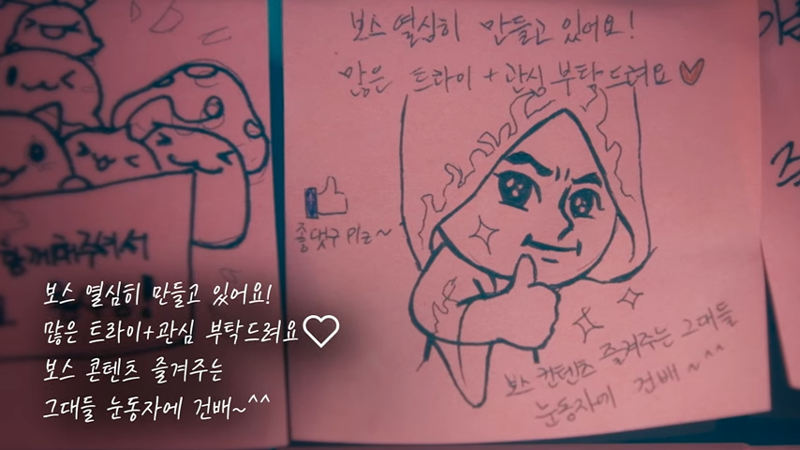 보스 열심히 만들고 있어요!
많은 트라이+관심 부탁드려요♡
좋댓구 Plz~
보스 컨텐츠 즐겨주는 그대들
눈동자에 건배~^^
함께해주셔서
보스 열심히 만들고 있어요!
많은 트라이+관심 부탁드려요♡
보스 콘텐츠 즐겨주는
그대들 눈동자에 건배~^^